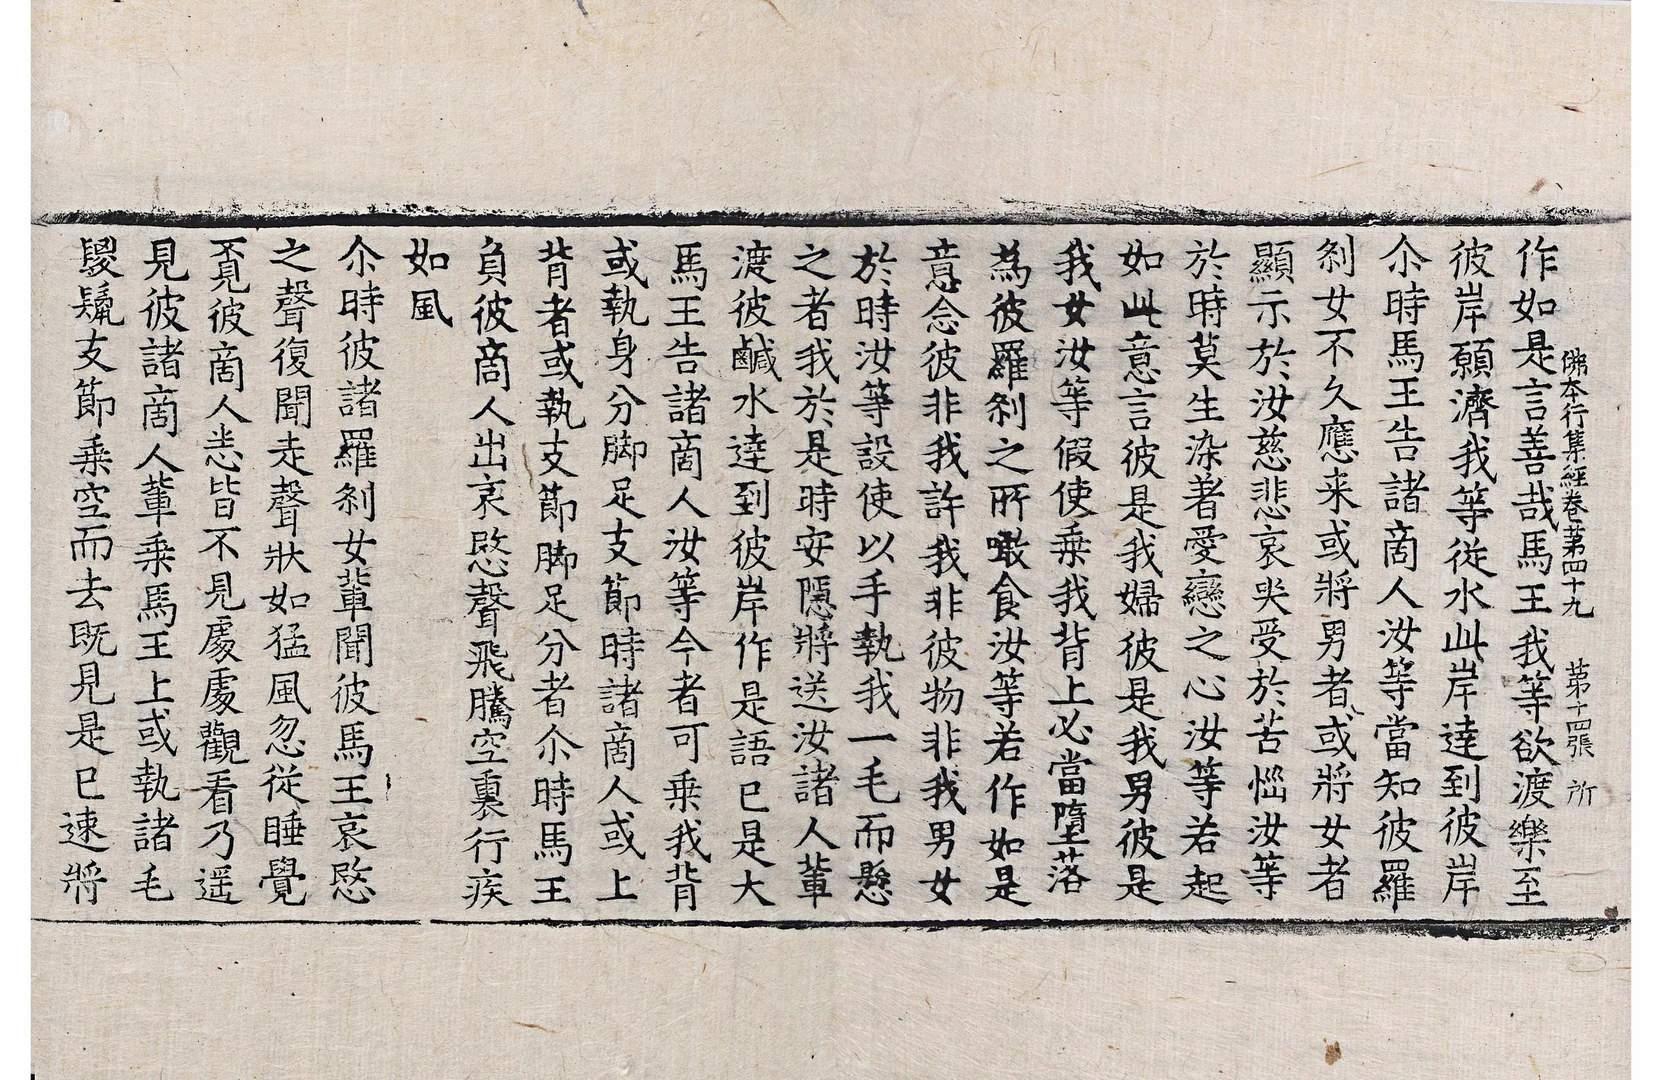 佛本行集經卷苐四十九　苐十四張　所
作如是言善哉馬王我等欲渡樂至
彼岸願濟我等從水此岸達到彼岸
尒時馬王告諸啇人汝等當知彼羅
刹女不久應来或將男者或將女者
顯示於汝慈悲哀哭受於苦惱汝等
於時莫生染著愛戀之心汝等若起
如此意言彼是我婦彼是我男彼是
我女汝等假使乗我背上必當墮落
為彼羅刹之所噉食汝等若作如是
意念彼非我許我非彼物非我男女
於時汝等設使以手執我一毛而懸
之者我於是時安隱將送汝諸人輩
渡彼鹹水達到彼岸作是語已是大
馬王告諸啇人汝等今者可乗我背
或執身分脚足支節時諸啇人或上
背者或執支節脚足分者尒時馬王
負彼啇人出哀愍聲飛騰空裏行疾
如風
尒時彼諸羅刹女輩聞彼馬王哀愍
之聲復聞走聲狀如猛風忽從睡覺
覓彼啇人悉皆不見處處觀看乃遥
見彼諸啇人輩乗馬王上或執諸毛
騣鬣支節乗空而去既見是已速將